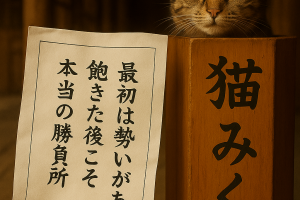 最初は勢いがち
飽きた後こそ
本当の勝負所
猫みく